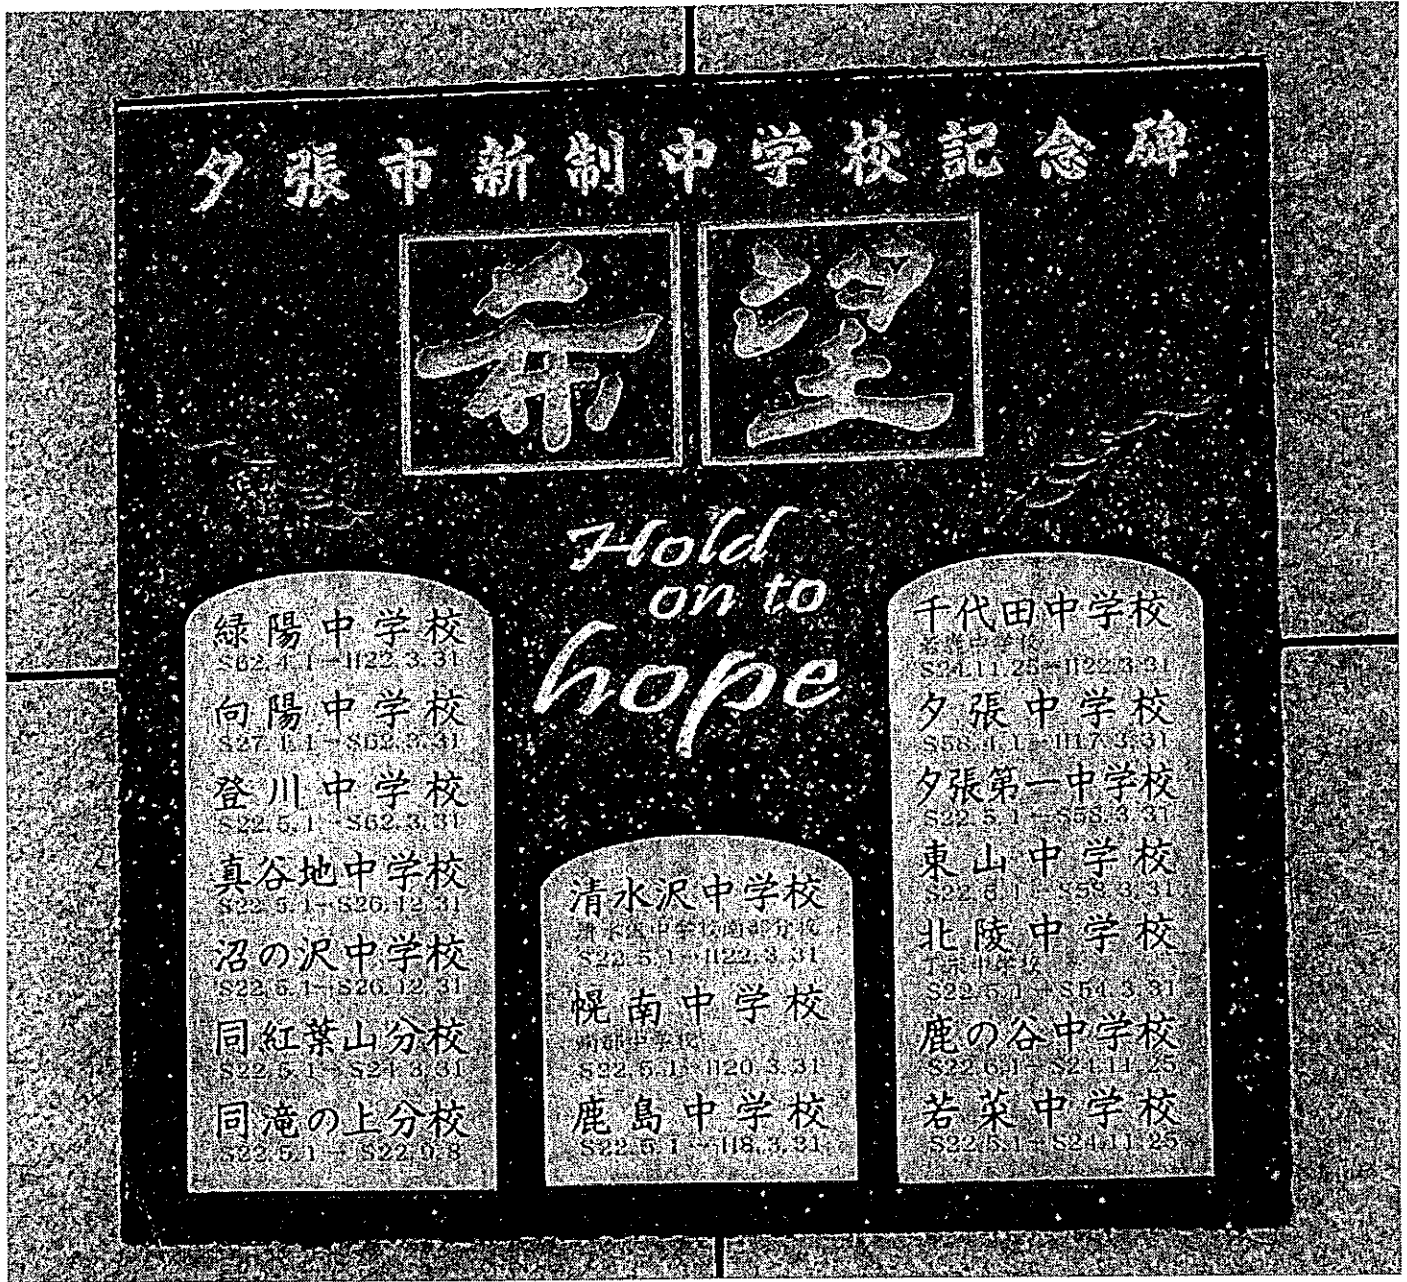 夕張市新制中学校記念碑
希望
Hold
on to
hope
緑陽中学校
S62.4.1→H22.3.31
向陽中学校
S27.1.1→S62.3.31
登川中学校
S22.5.1→S62.3.31
真谷地中学校
S22.5.1→S26.12.31
沼の沢中学校
S22.5.1→S26.12.31
同紅葉山分校
S22.5.1→S24.3.31
同滝の上分校
S22.5.1→S22.9.8
清水沢中学校
S22.5.1→H22.3.31
幌南中学校
S22.5.1→H20.3.31
鹿島中学校
S22.5.1→H8.3.31
千代田中学校
S24.11.25→H22.3.31
夕張中学校
S58.4.1→H17.3.31
夕張第一中学校
S22.5.1→S58.3.31
東山中学校
北陵中学校
S22.5.1→S54.3.31
鹿の谷中学校
S22.6.1→S24.11.25
若菜中学校
S22.5.1→S24.11.25